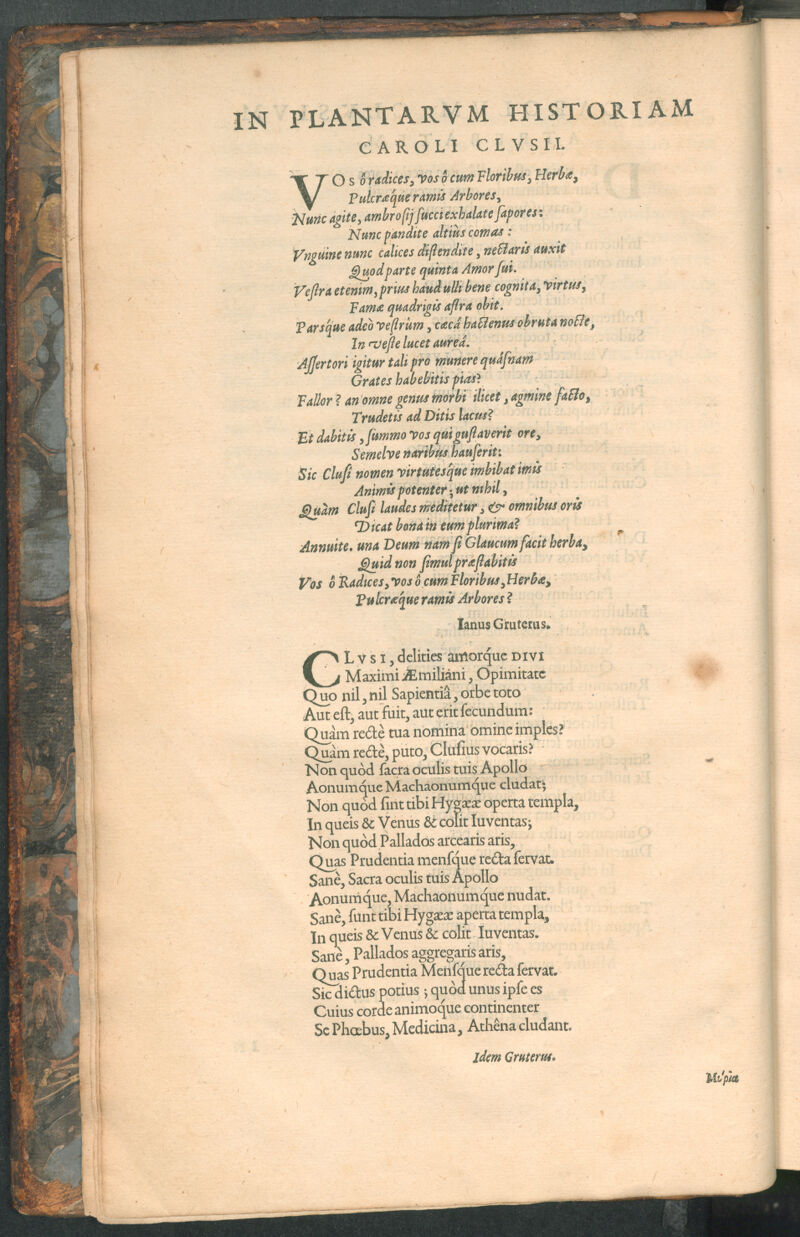 IN PLANTARVM HISTORIAM
CAROLI CLVSII.
VOs ô radices, vos ô cum Floribus, Herbæ,
Pulcræque ramis Arbores,
Nunc agite, ambrosij succi exhalate sapores:
Nunc pandite altiùs comas:
Vnguine nunc calices distendite, nectaris auxit
Quod parte quinta Amor sui.
Vestra etenim, prius haud ulli bene cognita, virtus,
Famæ quadrigis astra obit.
Parsque adeò vestrûm, cæcâ hactenus obruta nocte,
In veste lucet aureâ.
Assertori igitur tali pro munere quásnam
Grates habebitis pias?
Fallor? an omne genus morbi ilicet, agmine facto,
Trudetis ad Ditis lacus?
Et dabitis, summo vos qui gustaverit ore,
Semelve naribus hauserit:
Sic Clusi nomen virtutesque imbibat imis
Animis potenter; ut nihil,
Quàm Clusi laudes meditetur, & omnibus oris
Dicat bona in eum plurima?
Annuite. una Deum nam si Glaucum facit herba,
Quid non simul præstabitis
Vos ô Radices, vos ô cum Floribus, Herbæ,
Pulcræque ramis Arbores?
Ianus Gruterus.
CLVSI, delities amorque DIVI
Maximi Æmiliáni, Opimitate
Quo nil, nil Sapientiâ, orbe toto
Aut est, aut fuit, aut erit secundum:
Quàm rectè tua nomina omine imples?
Quàm rectè, puto, Clusius vocaris?
Non quòd sacra oculis tuis Apollo
Aonumque Machaonumque cludat;
Non quòd sint tibi Hygææ operta templa,
In queis & Venus & colit Iuventas;
Non quòd Pallados arcearis aris,
Quas Prudentia mensque recta servat.
Sanè, Sacra oculis tuis Apollo
Aonumque, Machaonumque nudat.
Sanè, sunt tibi Hygææ aperta templa,
In queis & Venus & colit Iuventas.
Sanè, Pallados aggregaris aris,
Quas Prudentia Mensque recta servat.
Sic dictus potius; quòd unus ipse es
Cuius corde animoque continenter
Se Phœbus, Medicina, Athêna cludant.
Idem Gruterus.